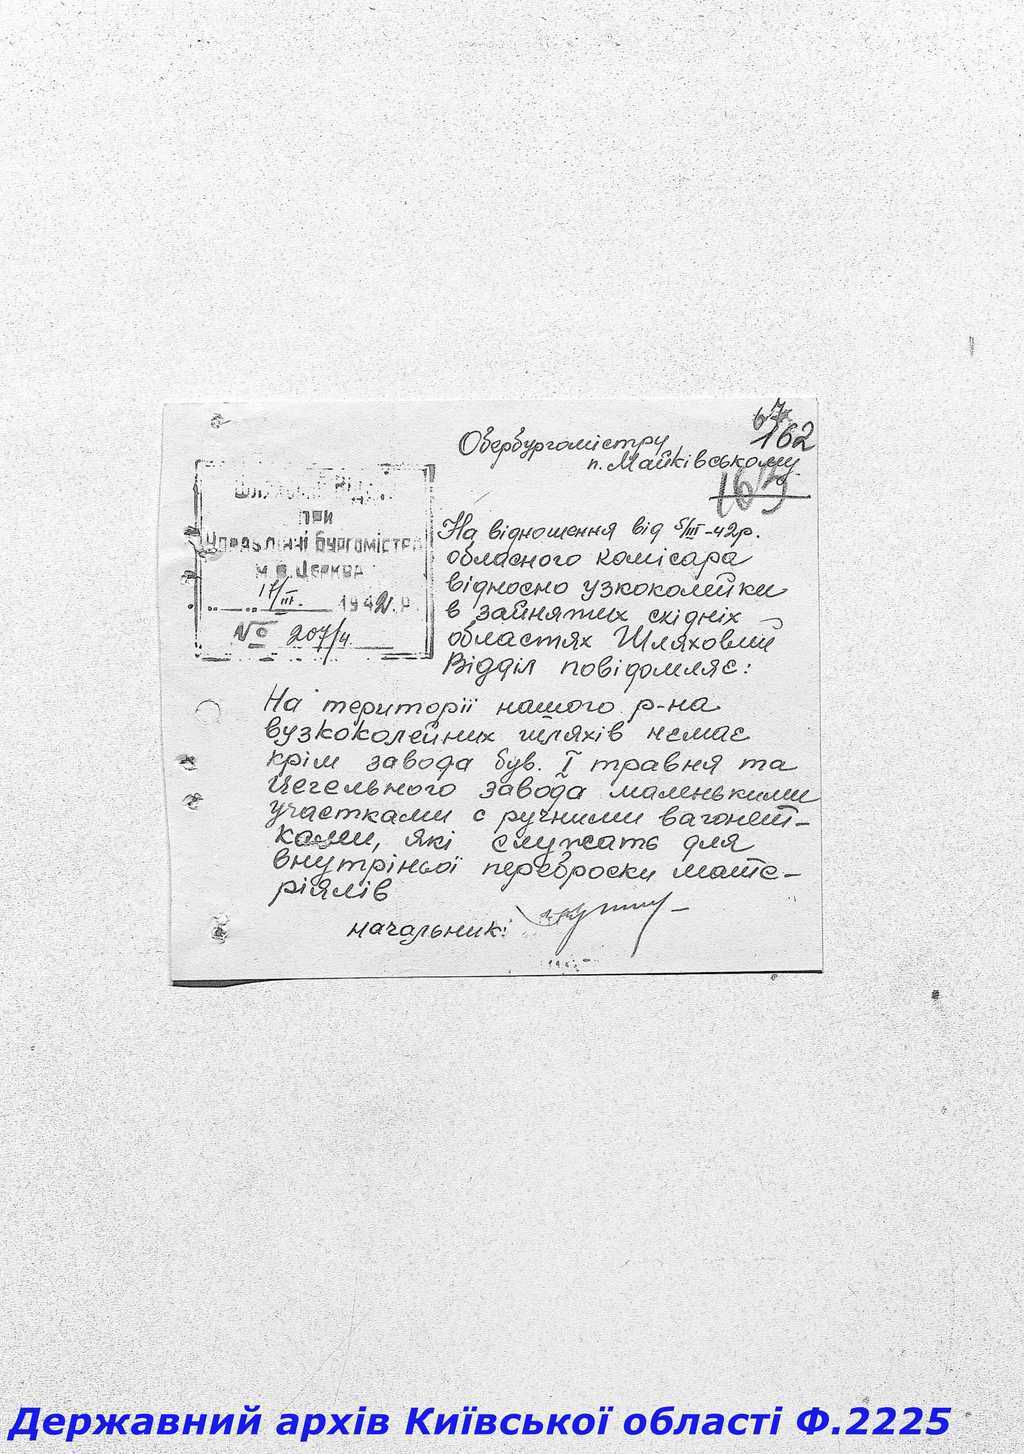 67
162
Обербургомістру
п. Майківському.
163
Шляховий Відділ
при
Управлінні бургомістра
м. Б. Церква
17/III. 1942.р.
№ 207/4
На відношення від 5/III-42р.
обласного комісара
відносно узкоколейки
в зайнятих східніх
областях Шляховий
Відділ повідомляє:
На території нашого р-на
вузкоколейних шляхів немає
крім завода був. I травня та
Цегельного завода маленькими
участками с ручними вагонет-
ками, які служать для
внутріньої переброски мате-
ріялів
начальник:
Державний архів Київської області Ф.2225